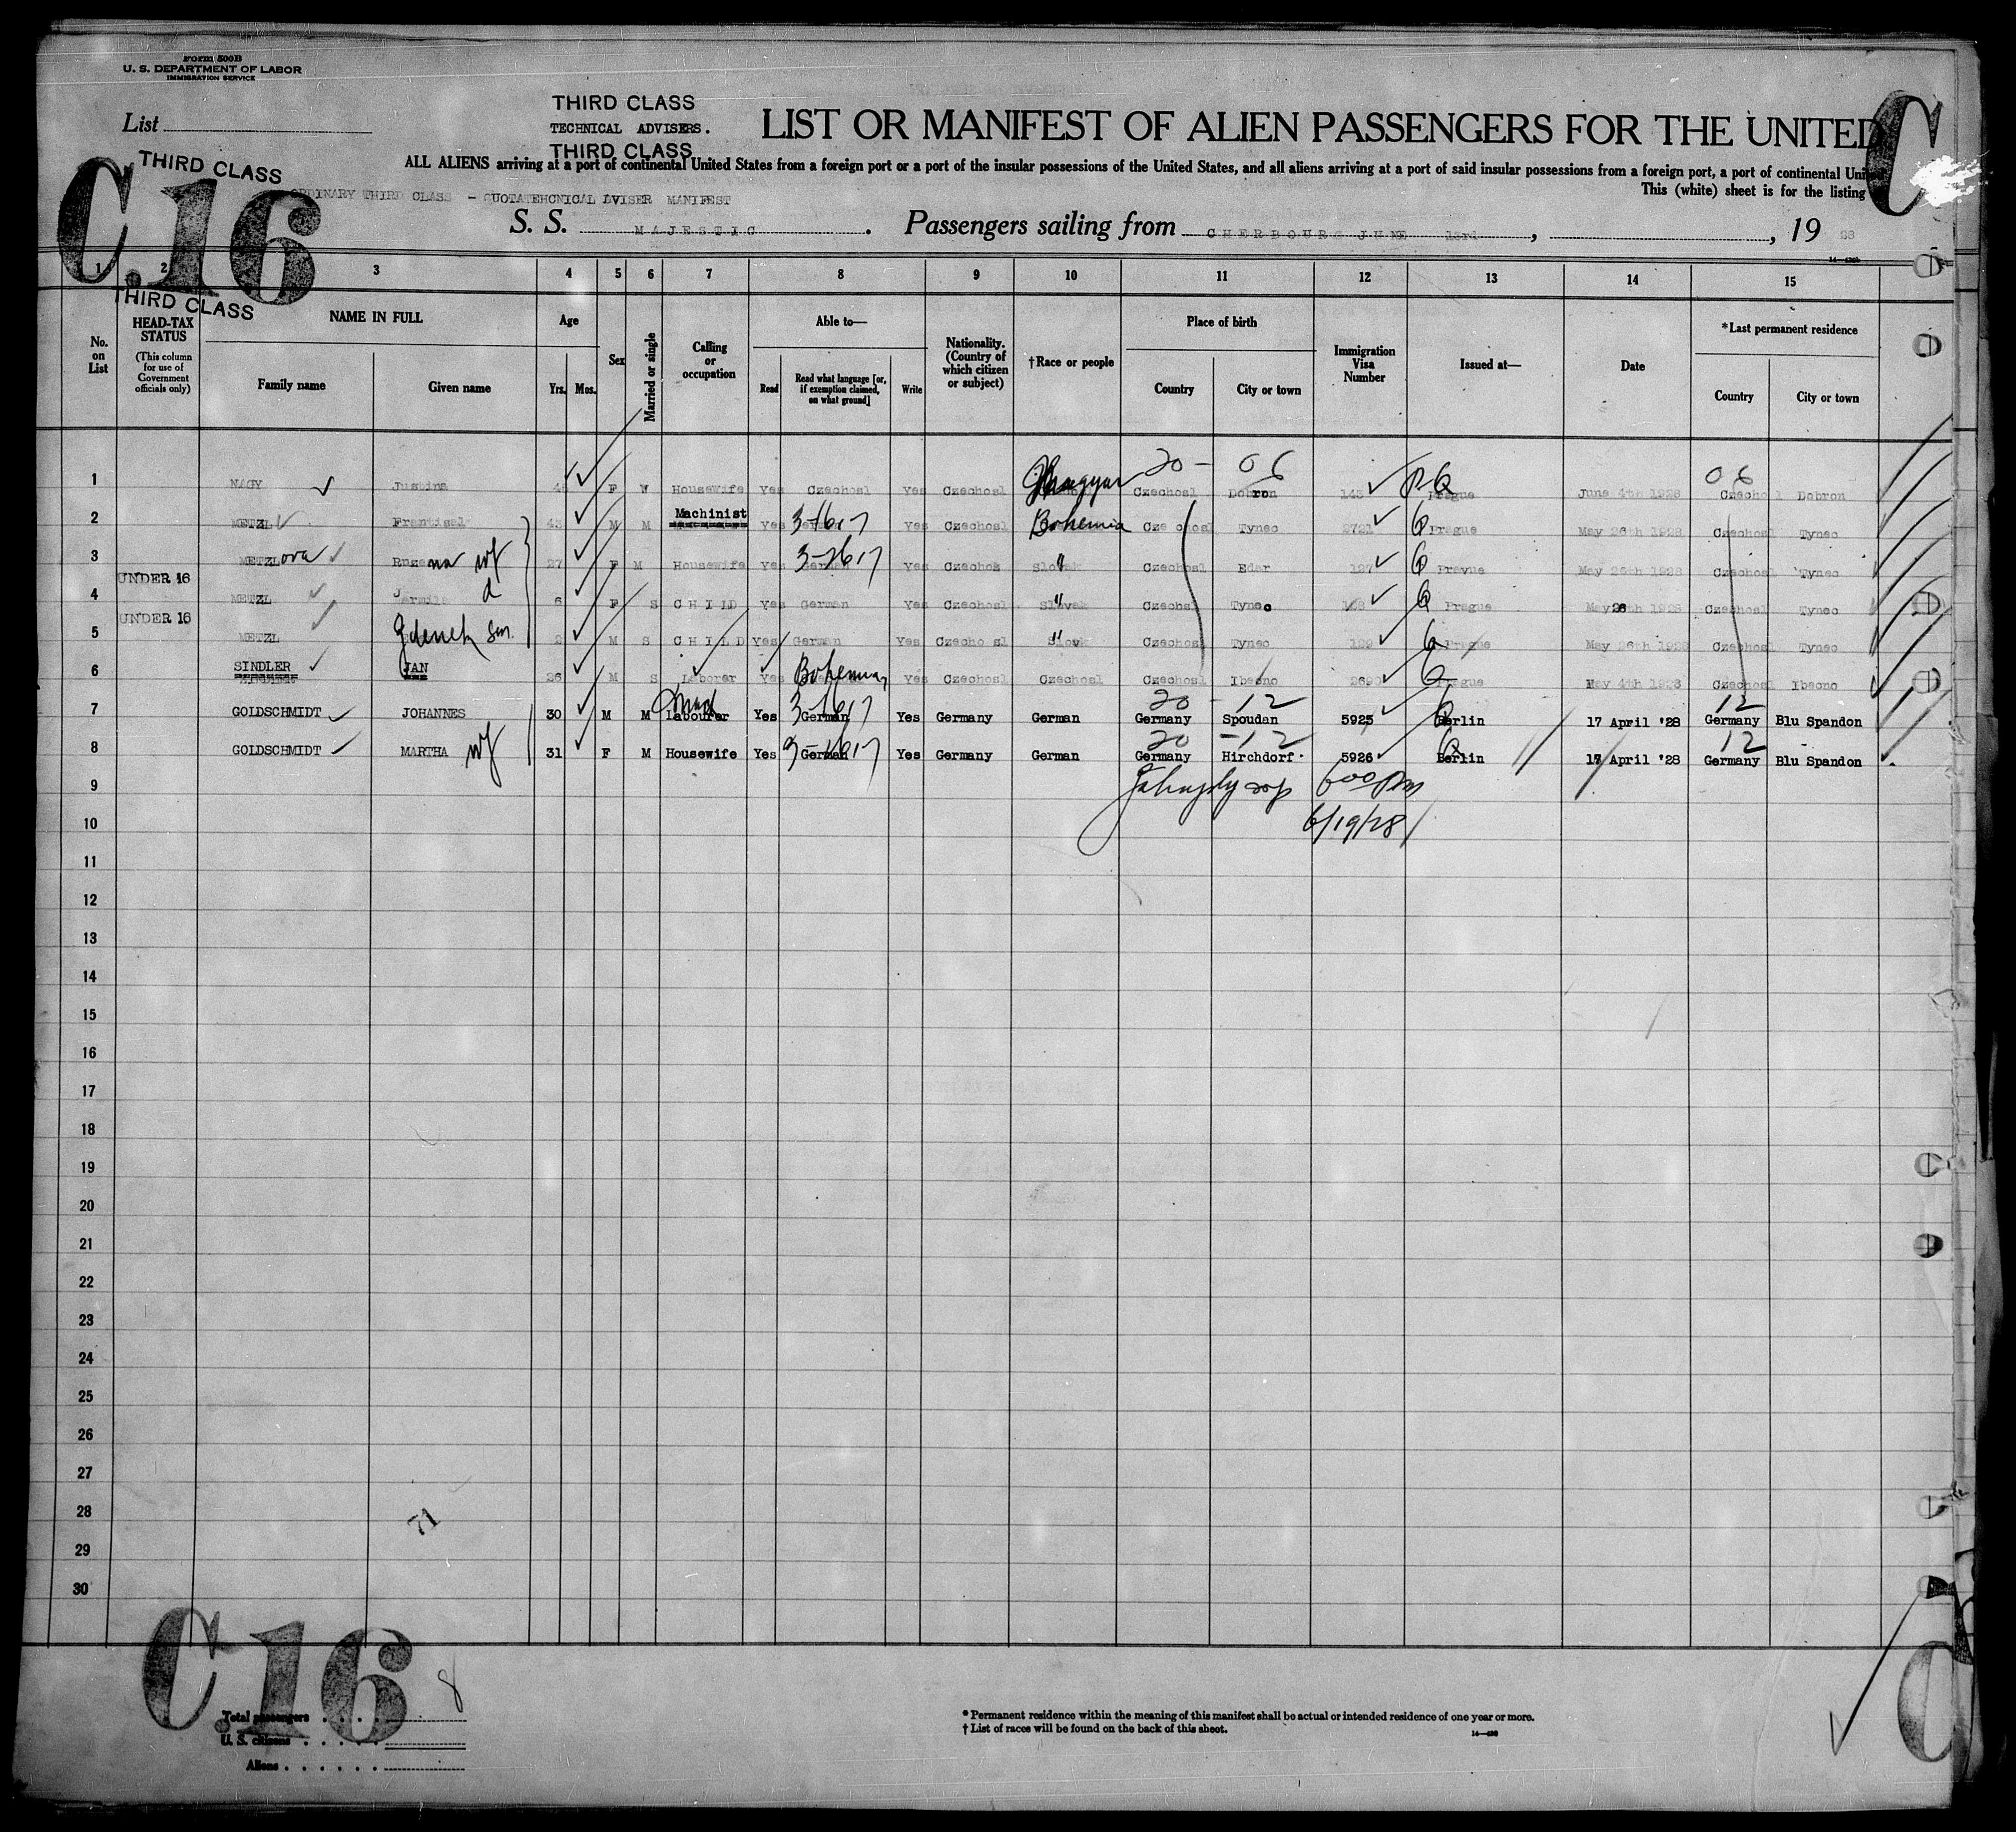 Form 500B
U. S. DEPARTMENT OF LABOR
IMMIGRATION SERVICE
List
THIRD CLASS
TECHNICAL ADVISERS.
THIRD CLASS
LIST OR MANIFEST OF ALIEN PASSENGERS FOR THE UNITED
C
THIRD CLASS
ALL ALIENS arriving at a port of continental United States from a foreign port or a port of the insular possessions of the United States, and all aliens arriving at a port of said insular possessions from a foreign port, a port of continental
This (white) sheet is for the listing
C.16
ORDINARY THIRD CLASS - QUOTATEHCNICAL AVISER MANIFEST
S. S. MAJESTIC. Passengers sailing from CHERBOURG JUNE 13rd, , 19 28
1 2 3 4 5 6 7 8 9 10 11 12 13 14 15
THIRD CLASS
No. on List
HEAD-TAX STATUS
(This column for use of Government officials only)
NAME IN FULL
Family name Given name
Age
Yrs. Mos.
Sex
Married or single
Calling or occupation
Able to—
Read
Read what language [or, if exemption claimed, on what ground]
Write
Nationality. (Country of which citizen or subject)
†Race or people
Place of birth
Country City or town
Immigration Visa Number
Issued at—
Date
*Last permanent residence
Country City or town
20 - 06 06
1 NAGY Justina F W Housewife Yes Czechosl Yes Czechosl Magyar Czechosl Dobron Prague June 4th 1928 Czechosl Dobron
2 METZL Frantisal 43 M M Machinist Yes Yes Czechosl Bohemia Czechosl Tynec 2721 Prague May 26th 1928 Czechosl Tynec
3 METZLova Ruzena wf 27 F M Housewife Yes German Yes Czechos Slovak " Czechosl Edar 127 Prague May 26th 1928 Czechosl Tynec
UNDER 16
4 METZL Jarmila d 6 F S CHILD Yes German Yes Czechosl Slovak " Czechsl Tynec Prague May 26th 1928 Czechosl Tynec
UNDER 16
5 METZL Zdenek son. 2 M S CHILD Yes German Yes Czecho sl Slovk " Czechosl Tynec 129 Prague May 26th 1928 Czechosl Tynec
6 SINDLER JAN 26 M S Laborer Yes Bohemian Yes Czechosl Czechosl Czechosl Ibecno 2690 Prague May 4th 1928 Czechosl Ibecno
20 - 12 12
7 GOLDSCHMIDT JOHANNES 30 M M Labourer Yes German Yes Germany German Germany Spoudan 5925 Berlin 17 April '28 Germany Blu Spandon
20 - 12 12
8 GOLDSCHMIDT MARTHA wf 31 F M Housewife Yes German Yes Germany German Germany Hirchdorf. 5926 Berlin 17 April '28 Germany Blu Spandon
9 600 Pm
10 6/19/28
11
12
13
14
15
16
17
18
19
20
21
22
23
24
25
26
27
28 71
29
30
C.16
8
C
Total passengers
U. S. citizens
Aliens
* Permanent residence within the meaning of this manifest shall be actual or intended residence of one year or more.
† List of races will be found on the back of this sheet.